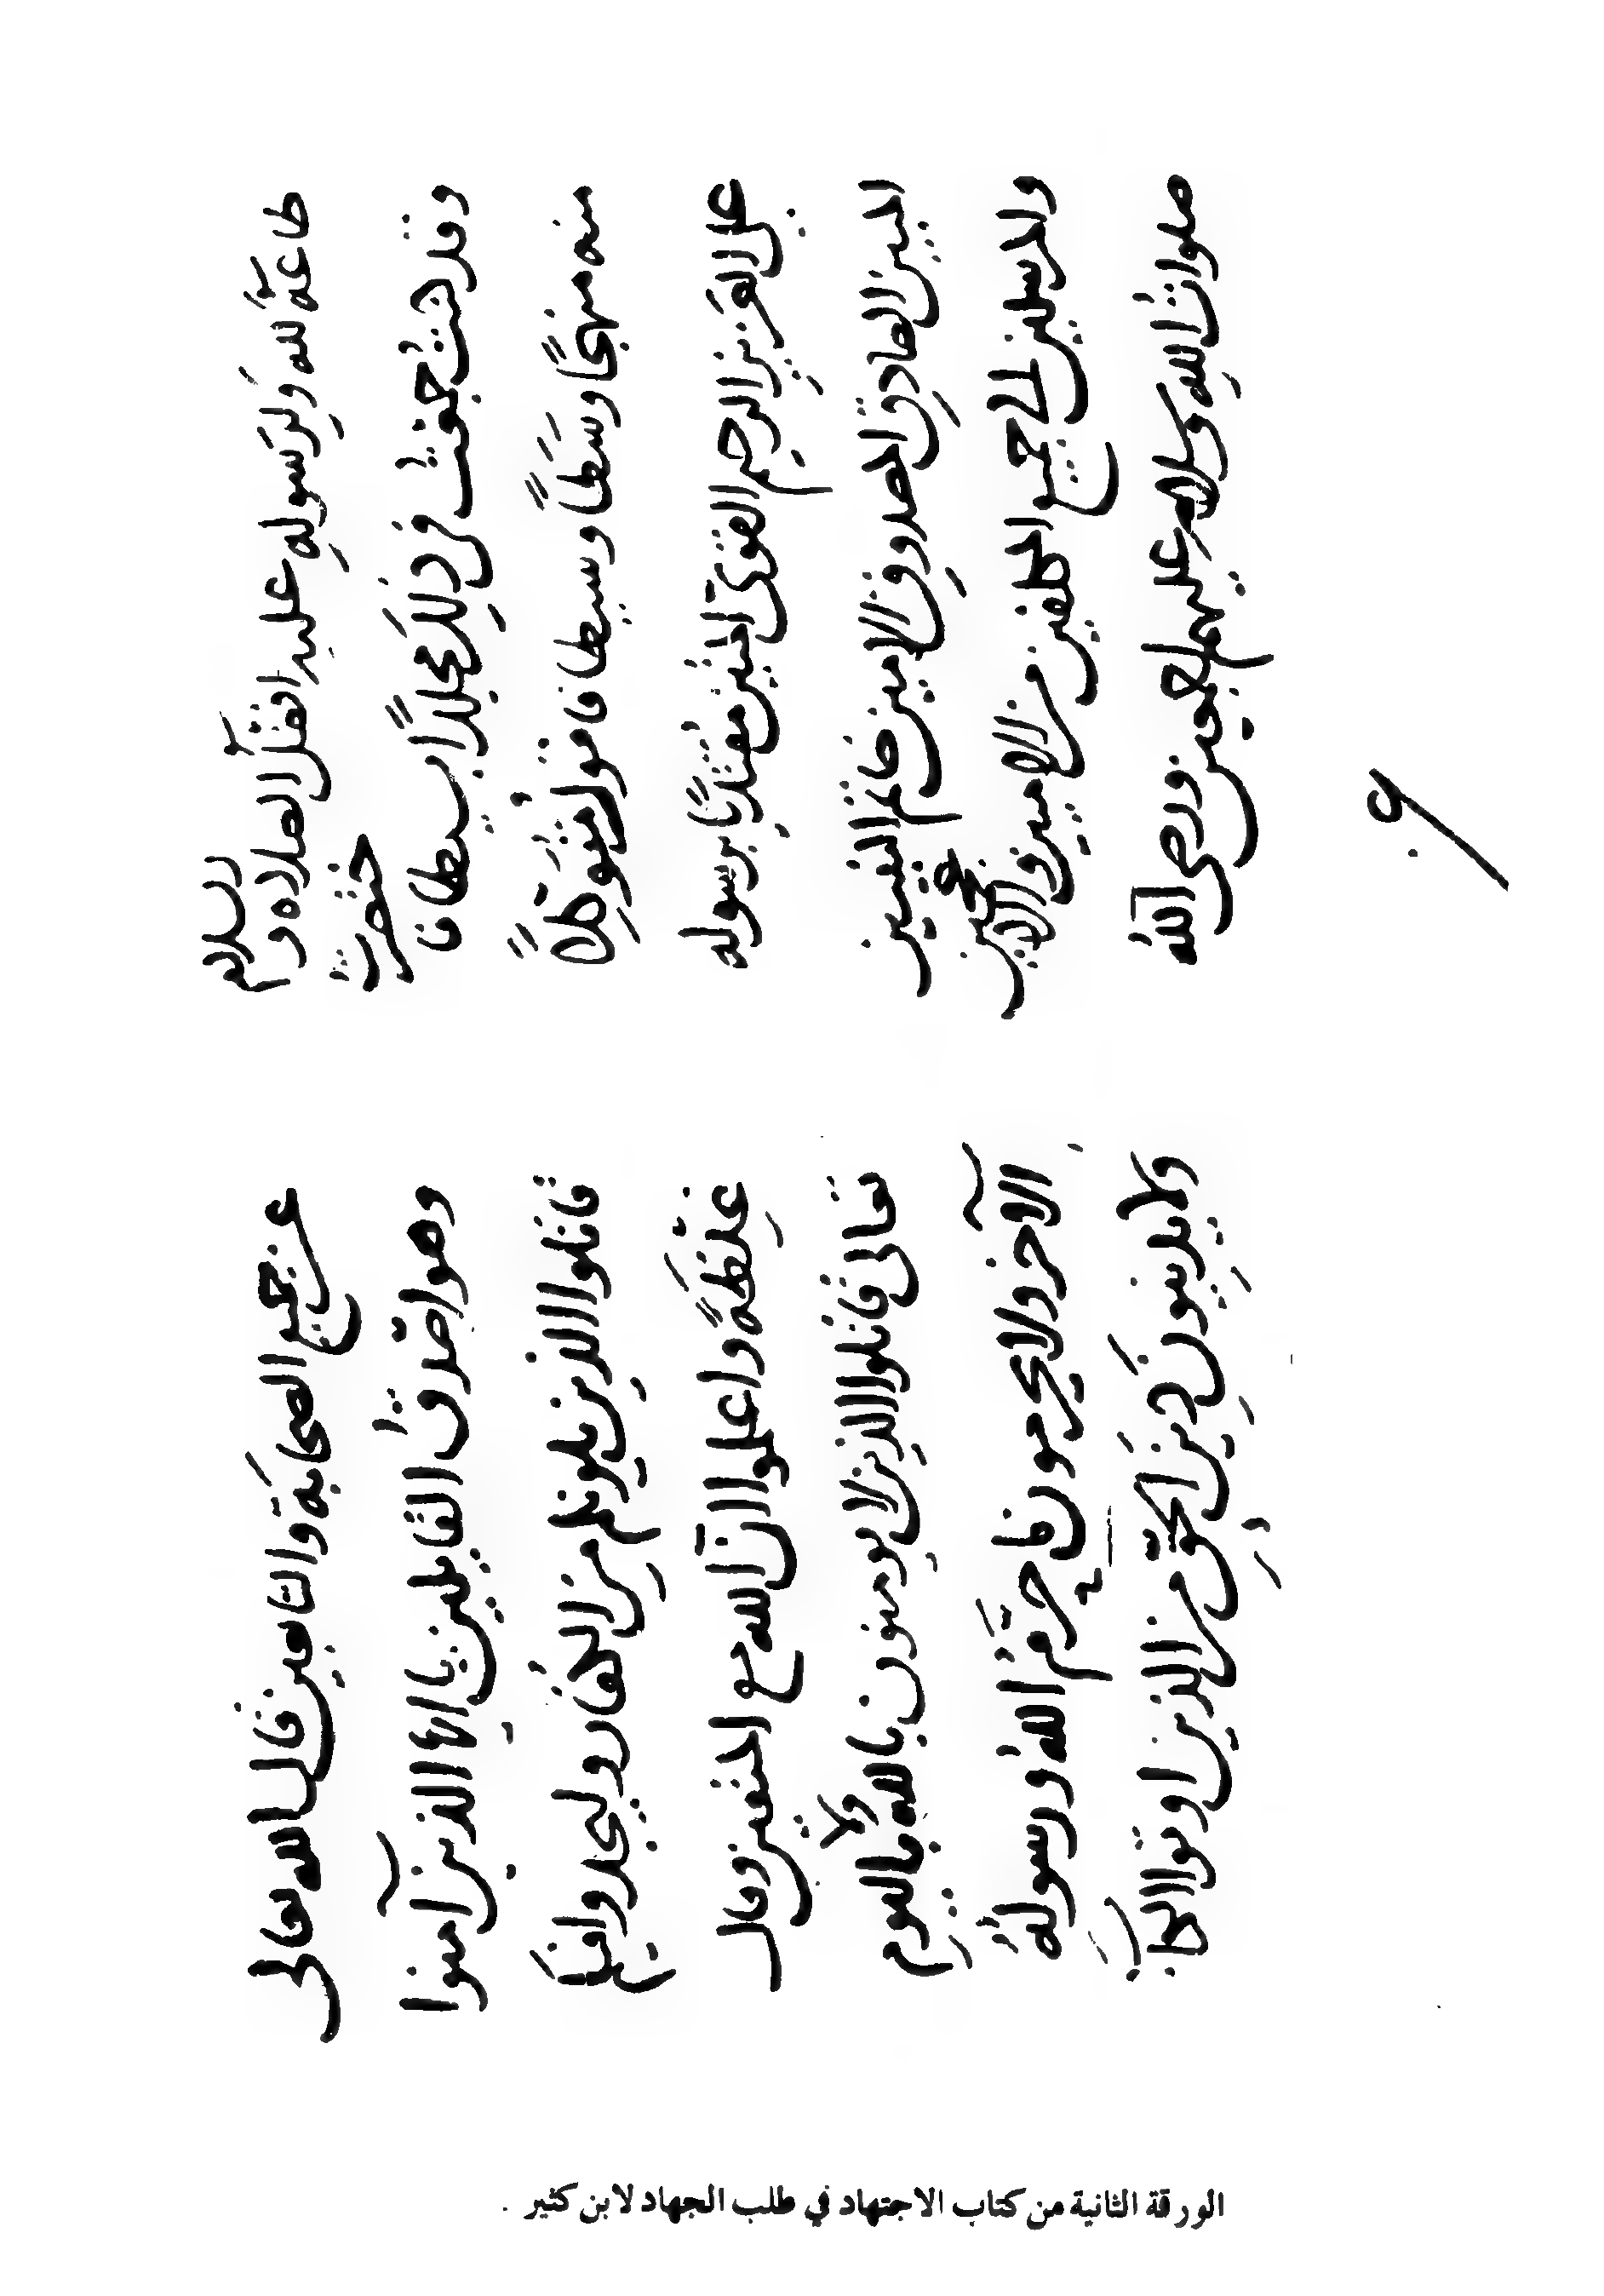 طاعةً لله ولرسوله عليه افضلُ الصلاه والسلام
وقد كنتُ جمعتُ في ذلك مجلدًا بسيطا فاختصرتُ
منه منهجًا وسَطًا وسيطا فاقولُ مُتوكِّلاً
على العزيز الرحيم القوى المتين مُقتديًا برسوله
المبين الصادق المصدوق الامين خاتم النبيين
والمرسلين الى جميع المكلفين من الاميين
صلواتُ الله وسلامه عليهم اجمعين ورضى اللهُ
عن جميع الصحابَة والتابعين قال الله تعالى
وهو اصْدقُ القايلين يا ايها الذين آمنوا
قاتلوا الذين يلونكم مِن الكفار وليجدوا فيكم
غِلْظَةً واعلموا انّ الله مع المتقين وقال
تعَالى قاتلوا الذين لا يومنون بالله ولا باليوم
الآخر ولا يحرمون ما حرَّم اللهُ ورسولهُ
ولا يدينونَ دِينَ الحقّ من الذين اوتوا الكتابَ
الورقة الثانية من كتاب الاجتهاد في طلب الجهاد لابن كثير .